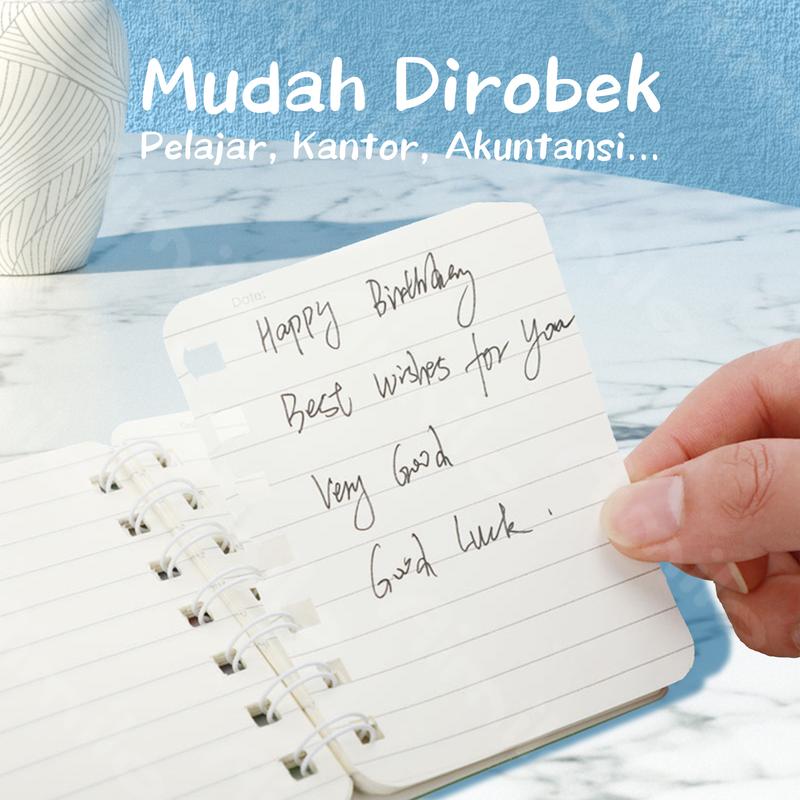 Mudah Dirobek
Pelajar, Kantor, Akuntansi...
Date:
Happy Birthday
Best wishes for you
Very Good
Good Luck.